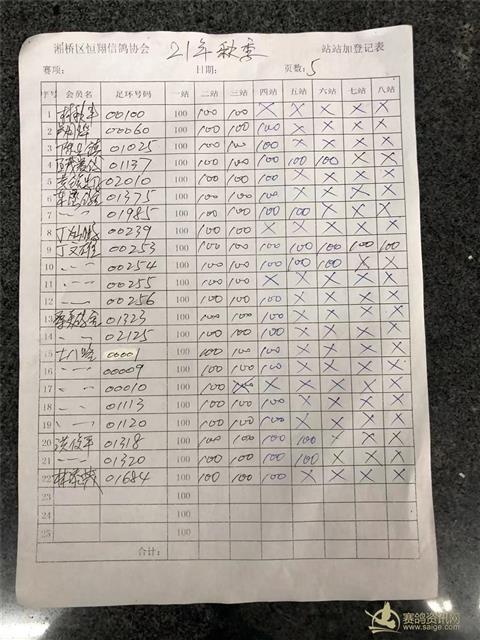 湘桥区恒翔信鸽协会 21年秋季 站站加登记表
赛项: 日期: 页数: 5
序号 会员名 足环号码 一站 二站 三站 四站 五站 六站 七站 八站
1 00100 100 100 100 X X X X X
2 00060 100 100 100 100 X X X X
3 01025 100 100 100 100 X X X X
4 01137 100 100 100 100 100 100 X X
5 02010 100 100 100 100 X X X X
6 01375 100 100 100 100 X X X X
7 01985 100 100 100 100 100 X X X
8 00239 100 100 100 X X X X X
9 丁文雄 00253 100 100 100 100 100 100 100 100
10 00254 100 100 100 100 100 100 X X
11 00255 100 100 100 X X X X X
12 00256 100 100 100 100 X X X X
13 01323 100 100 100 100 X X X X
14 02125 100 100 100 100 X X X X
15 00001 100 100 100 100 X X X X
16 00009 100 100 100 100 X X X X
17 00010 100 100 X X X X X
18 01113 100 100 100 100 X X X X
19 01120 100 100 100 100 X X X X
20 洪俊平 01318 100 100 100 100 100 X X X
21 01320 100 100 100 100 100 X X X
22 01684 100 100 100 100 X X X X
23 100
24 100
25 100
合计:
赛鸽资讯网
www.saige.com